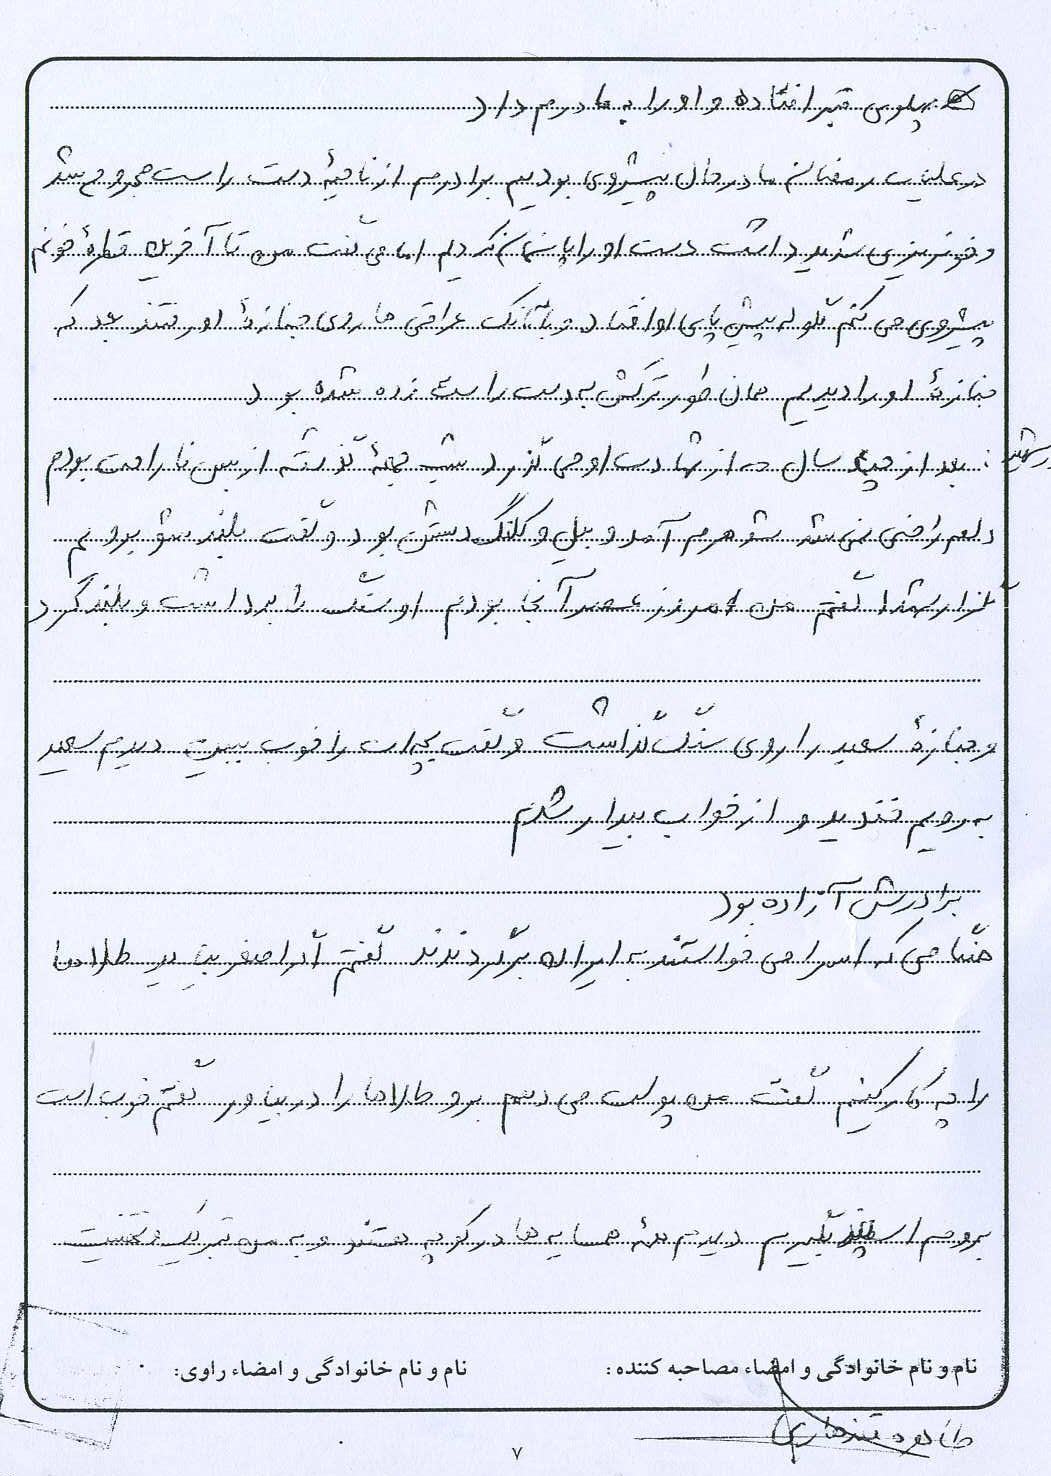 پهلوی قبر افتاده و او را به مادرم داد
در عملیات رمضان ما در حال پیشروی بودیم برادرم از ناحیهٔ دست راست مجروح شد
و خونریزی شدید داشت دست او را پانسمان کردیم اما می گفت من تا آخرین قطرهٔ خونم
پیشروی می کنم گلوله پیش پای او افتاد و تانک عراقی ها روی جنازهٔ او رفتند بعد که
جنازهٔ او را دیدیم همان طور ترکش به دست راست زده شده بود
بعد از چند سال که از شهادت او می گذرد شب جمعهٔ گذشته از بس ناراحت بودم
دلم راضی نمی شد شوهرم آمد و بیل و کلنگ دستش بود و گفت بلند شو برویم
گلزار شهدا گفتم من امروز عصر آنجا بودم او سنگ را برداشت و بلند کرد
و جنازهٔ سعید را روی سنگ گذاشت و گفت بچه ات را خوب ببین دیدم سعید
به رویم خندید و از خواب بیدار شدم
برادرش آزاده بود
هنگامی که اسرا می خواستند به ایران برگردندند گفتم آقا اصغر بیایید طلاها
را چه کار کنیم گفت من پولت می دهم برو طلاها را در بیاور گفتم خوب است
بروم اسپند بگیرم دیدم همهٔ همسایه ها در کوچه هستند و به من تبریک و تهنیت
نام و نام خانوادگی و امضاء مصاحبه کننده :
نام و نام خانوادگی و امضاء راوی:
طاهره قندهاری
۷